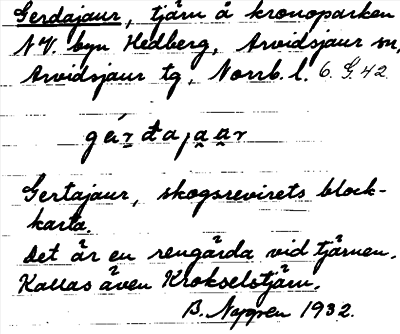 Gerdajaur, tjärn å kronoparken
NV. byn Hedberg, Arvidsjaur sn,
Arvidsjaur tg, Norrb. l. 6. G. 42
gárđajaur
Gertajaur, skogsrevirets block-
karta.
Det är en rengärda vid tjärnen.
Kallas även Krokselstjärn.
B. Nygren 1932.